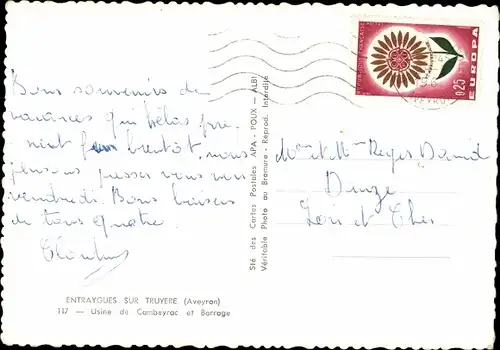 Bons souvenirs de
vacances qui hélas pre
nnent fin bientôt, nous
pensons passer vous voir
vendredi. Bons baisers
de tous quatre.
ENTRAYGUES SUR TRUYERE (Aveyron)
117 — Usine de Cambeyrac et Barrage
Sté des Cartes Postales APA - POUX - ALBI
Véritable Photo au Bromure - Reprod. Interdite
REPUBLIQUE FRANÇAISE
0,25
EUROPA
Mme et Mr Roger David
Loir et Cher